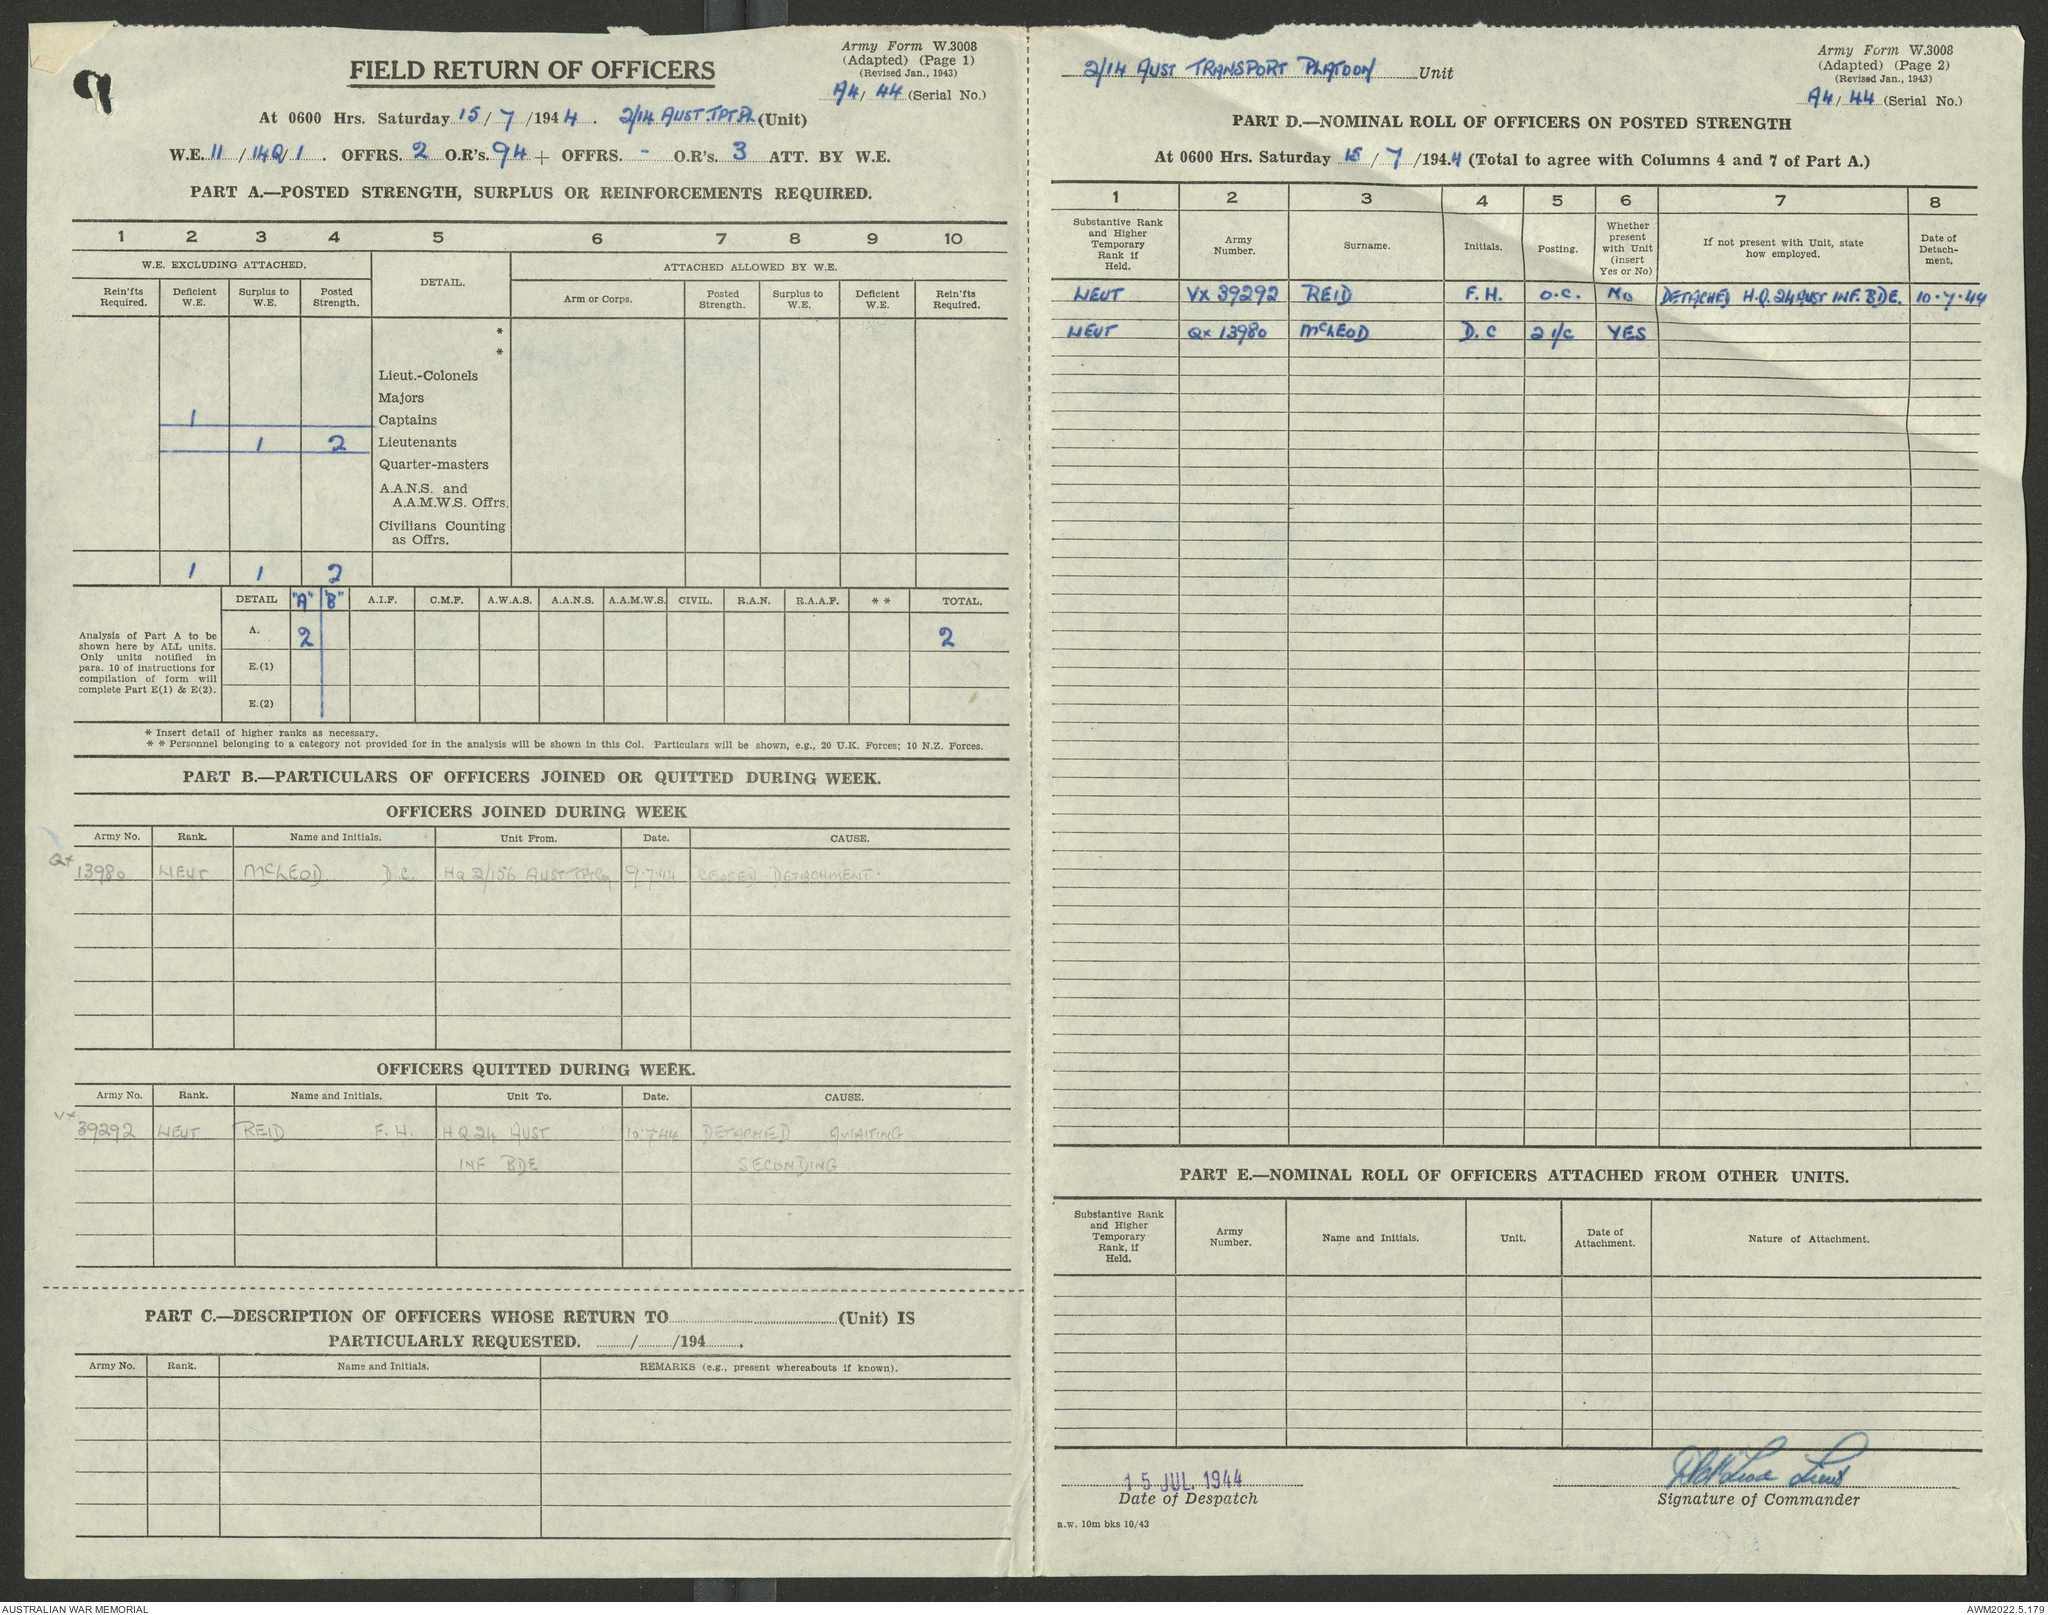 Army Form W.3008
(Adapted) (Page 1)
(Revised Jan., 1943)
A4/ 44 (Serial No.)
FIELD RETURN OF OFFICERS
At 0600 Hrs. Saturday 15/ 7 /1944. 2/14 AUST. TPT PL (Unit)
W.E. 11 / 14Q/ 1 . OFFRS. 2 O.R's. 94 + OFFRS. - O.R's. 3 ATT. BY W.E.
PART A.—POSTED STRENGTH, SURPLUS OR REINFORCEMENTS REQUIRED.
1 2 3 4 5 6 7 8 9 10
W.E. EXCLUDING ATTACHED. DETAIL. ATTACHED ALLOWED BY W.E.
Rein'fts Required. Deficient W.E. Surplus to W.E. Posted Strength. Arm or Corps. Posted Strength. Surplus to W.E. Deficient W.E. Rein'fts Required.
*
*
Lieut.-Colonels
Majors
1 Captains
1 2 Lieutenants
Quarter-masters
A.A.N.S. and
A.A.M.W.S. Offrs.
Civilians Counting
as Offrs.
1 1 2
DETAIL "A" "B" A.I.F. C.M.F. A.W.A.S. A.A.N.S. A.A.M.W.S. CIVIL. R.A.N. R.A.A.F. * * TOTAL.
Analysis of Part A to be
shown here by ALL units.
Only units notified in
para. 10 of instructions for
compilation of form will
complete Part E(1) & E(2).
A. 2 2
E.(1)
E.(2)
* Insert detail of higher ranks as necessary.
* * Personnel belonging to a category not provided for in the analysis will be shown in this Col. Particulars will be shown, e.g., 20 U.K. Forces; 10 N.Z. Forces.
PART B.—PARTICULARS OF OFFICERS JOINED OR QUITTED DURING WEEK.
OFFICERS JOINED DURING WEEK
Army No. Rank. Name and Initials. Unit From. Date. CAUSE.
QX 13980 LIEUT McLEOD D.C. HQ 2/156 AUST TPT Coy 9.7.44 CEASED DETACHMENT.
OFFICERS QUITTED DURING WEEK.
Army No. Rank. Name and Initials. Unit To. Date. CAUSE.
VX 39292 LIEUT REID F. H. H Q 24 AUST 10.7.44 DETACHED AWAITING
INF BDE SECONDING
PART C.—DESCRIPTION OF OFFICERS WHOSE RETURN TO (Unit) IS
PARTICULARLY REQUESTED. / /194 .
Army No. Rank. Name and Initials. REMARKS (e.g., present whereabouts if known).
2/14 AUST TRANSPORT PLATOON Unit
Army Form W.3008
(Adapted) (Page 2)
(Revised Jan., 1943)
A4/ 44 (Serial No.)
PART D.—NOMINAL ROLL OF OFFICERS ON POSTED STRENGTH
At 0600 Hrs. Saturday 15 / 7 /194.4 (Total to agree with Columns 4 and 7 of Part A.)
1 2 3 4 5 6 7 8
Substantive Rank and Higher Temporary Rank if Held. Army Number. Surname. Initials. Posting. Whether present with Unit (insert Yes or No) If not present with Unit, state how employed. Date of Detach-ment.
LIEUT VX 39292 REID F. H. O.C. NO DETACHED H.Q. 24 AUST INF. BDE. 10.7.44
LIEUT QX 13980 McLEOD D. C 2 I/C YES
PART E.—NOMINAL ROLL OF OFFICERS ATTACHED FROM OTHER UNITS.
Substantive Rank and Higher Temporary Rank, if Held. Army Number. Name and Initials. Unit. Date of Attachment. Nature of Attachment.
15 JUL 1944
Date of Despatch
DMcLeod Lieut
Signature of Commander
a.w. 10m bks 10/43
AUSTRALIAN WAR MEMORIAL
AWM2022.5.179